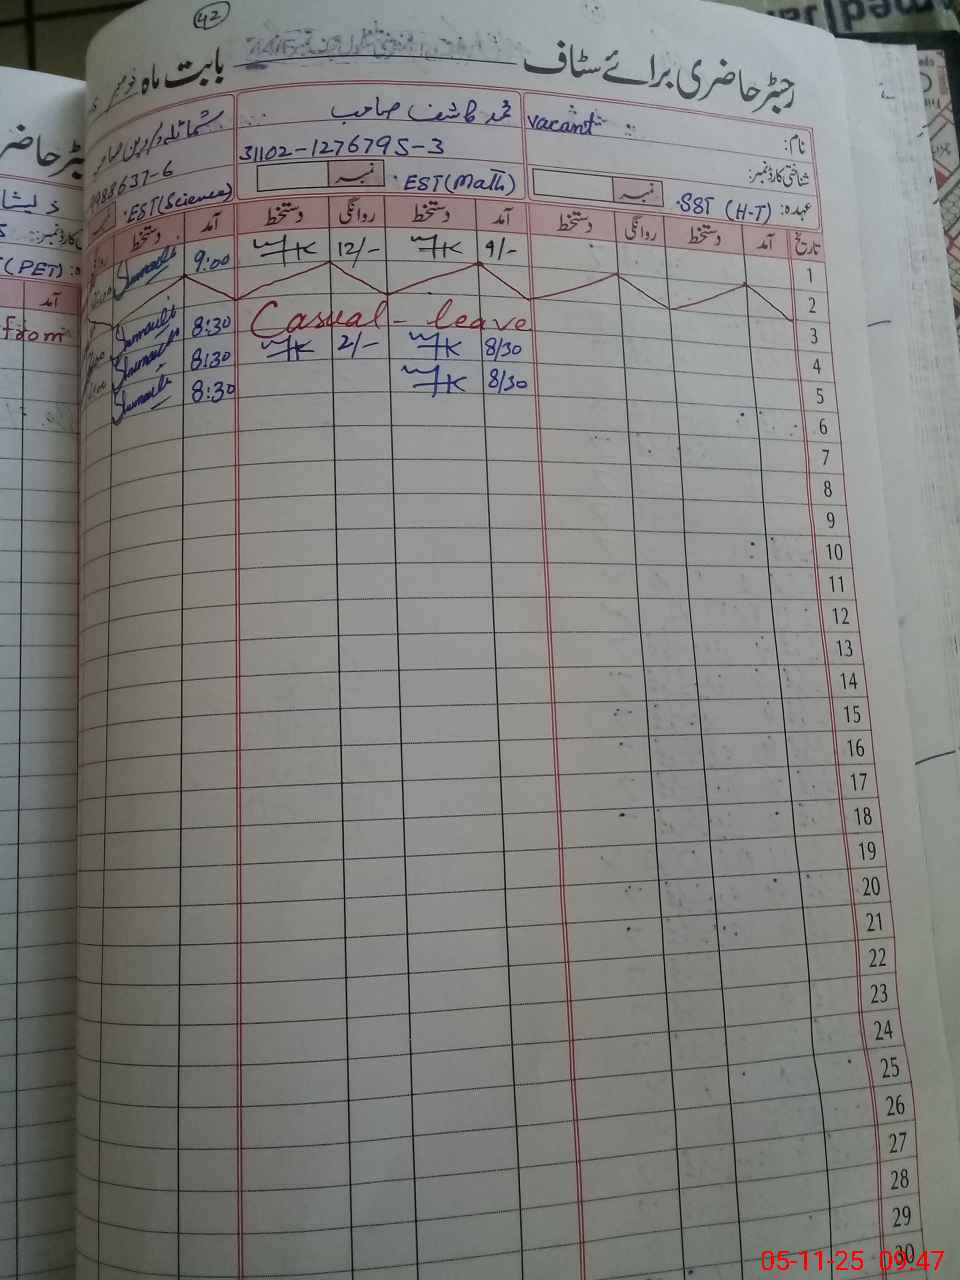 42
رجسٹر حاضری برائے سٹاف
بابت ماہ نومبر
نام: vacant
محمد کاشف صاحب
شناختی کارڈ نمبر:
31102-1276795-3
988637-6
عہدہ: SST (H-T) نمبر
EST(Math) نمبر
EST(Science)
تاریخ آمد دستخط روانگی دستخط آمد دستخط روانگی دستخط آمد دستخط
1 9/- 12/- 9:00
2
3 Casual leave 8:30
4 8/30 2/- 8:30
5 8/30 8:30
6
7
8
9
10
11
12
13
14
15
16
17
18
19
20
21
22
23
24
25
26
27
28
29
30
(PET)
آمد
from
05-11-25 09:47